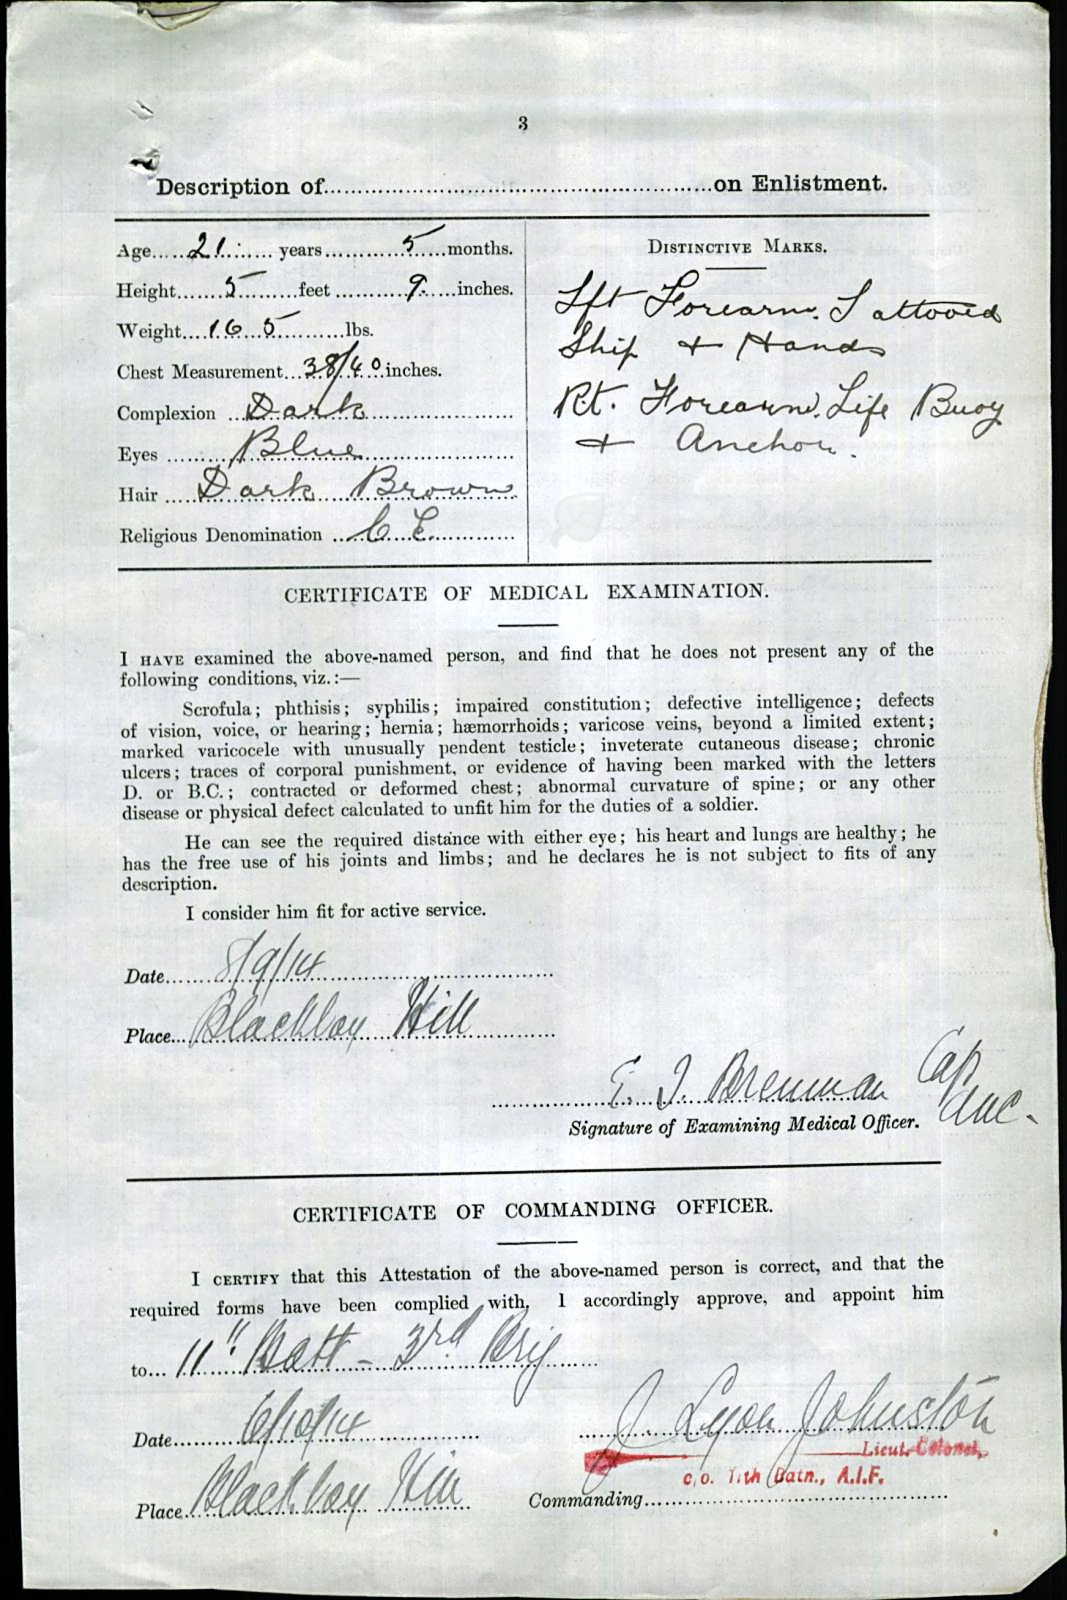 3
Description of......................................................on Enlistment.
Age 21 years 5 months.
Height 5 feet 9 inches.
Weight 165 lbs.
Chest Measurement 38/40 inches.
Complexion Dark
Eyes Blue
Hair Dark Brown
Religious Denomination C E.
DISTINCTIVE MARKS.
Lft Forearm. Tattooed
Ship + Hands
Rt. Forearm. Life Buoy
+ Anchor.
CERTIFICATE OF MEDICAL EXAMINATION.
I HAVE examined the above-named person, and find that he does not present any of the
following conditions, viz.:—
Scrofula; phthisis; syphilis; impaired constitution; defective intelligence; defects
of vision, voice, or hearing; hernia; hæmorrhoids; varicose veins, beyond a limited extent;
marked varicocele with unusually pendent testicle; inveterate cutaneous disease; chronic
ulcers; traces of corporal punishment, or evidence of having been marked with the letters
D. or B.C.; contracted or deformed chest; abnormal curvature of spine; or any other
disease or physical defect calculated to unfit him for the duties of a soldier.
He can see the required distance with either eye; his heart and lungs are healthy; he
has the free use of his joints and limbs; and he declares he is not subject to fits of any
description.
I consider him fit for active service.
Date 8/9/14
Place Blackboy Hill
E. J. Brennan Cap
AMC.
Signature of Examining Medical Officer.
CERTIFICATE OF COMMANDING OFFICER.
I CERTIFY that this Attestation of the above-named person is correct, and that the
required forms have been complied with. I accordingly approve, and appoint him
to 11" Batt - 3rd Brig
Date 6/10/14
J Lyon Johnston
Lieut.-Colonel,
c.o. 11th Batn., A.I.F.
Place Blackboy Hill
Commanding